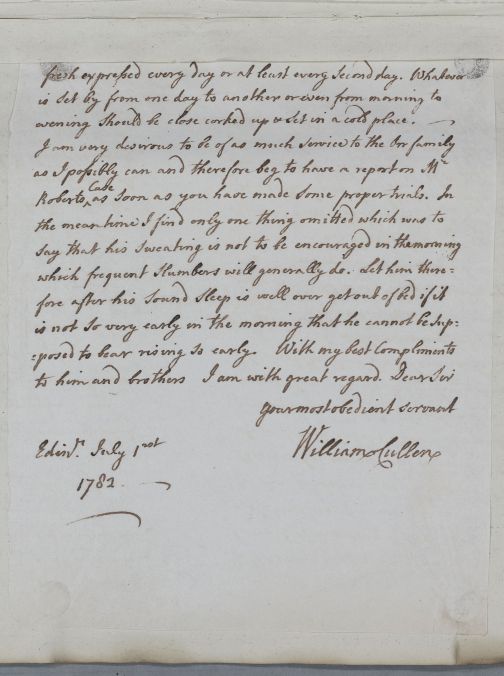 fresh expressed every day or at least every second day. Whatever
is set by from one day to another or even from morning to
evening should be close corked up & set in a cold place.
I am very desirous to be of as much service to the Orr family
as I possibly can and therefore beg to have a report on Mr
Roberts Case as soon as you have made some proper trials. In
the meantime I find only one thing omitted which was to
say that his sweating is not to be encouraged in the morning
which frequent slumbers will generally do. Let him there=
fore after his sound sleep is well over get out of bed if it
is not so very early in the morning that he cannot be sup=
=posed to bear rising so early. With my best Compliments
to him and brothers I am with great regard. Dear Sir
your most obedient servant
William Cullen
Edinr. July 1st
1782.